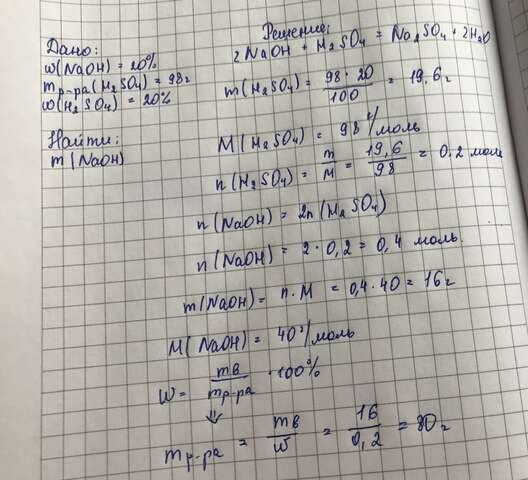 Дано:
w(NaOH) = 20%
mр-ра(H2SO4) = 98г
w(H2SO4) = 20%
Найти:
m(NaOH)
Решение:
2NaOH + H2SO4 = Na2SO4 + 2H2O
m(H2SO4) = 98·20/100 = 19,6г
M(H2SO4) = 98 г/моль
n(H2SO4) = m/M = 19,6/98 = 0.2 моль
n(NaOH) = 2n(H2SO4)
n(NaOH) = 2·0,2 = 0,4 моль.
m(NaOH) = n·M = 0,4·40 = 16г
M(NaOH) = 40 г/моль
W = mв/mр-ра ·100%
⇓
mр-ра = mв/w = 16/0,2 = 80г